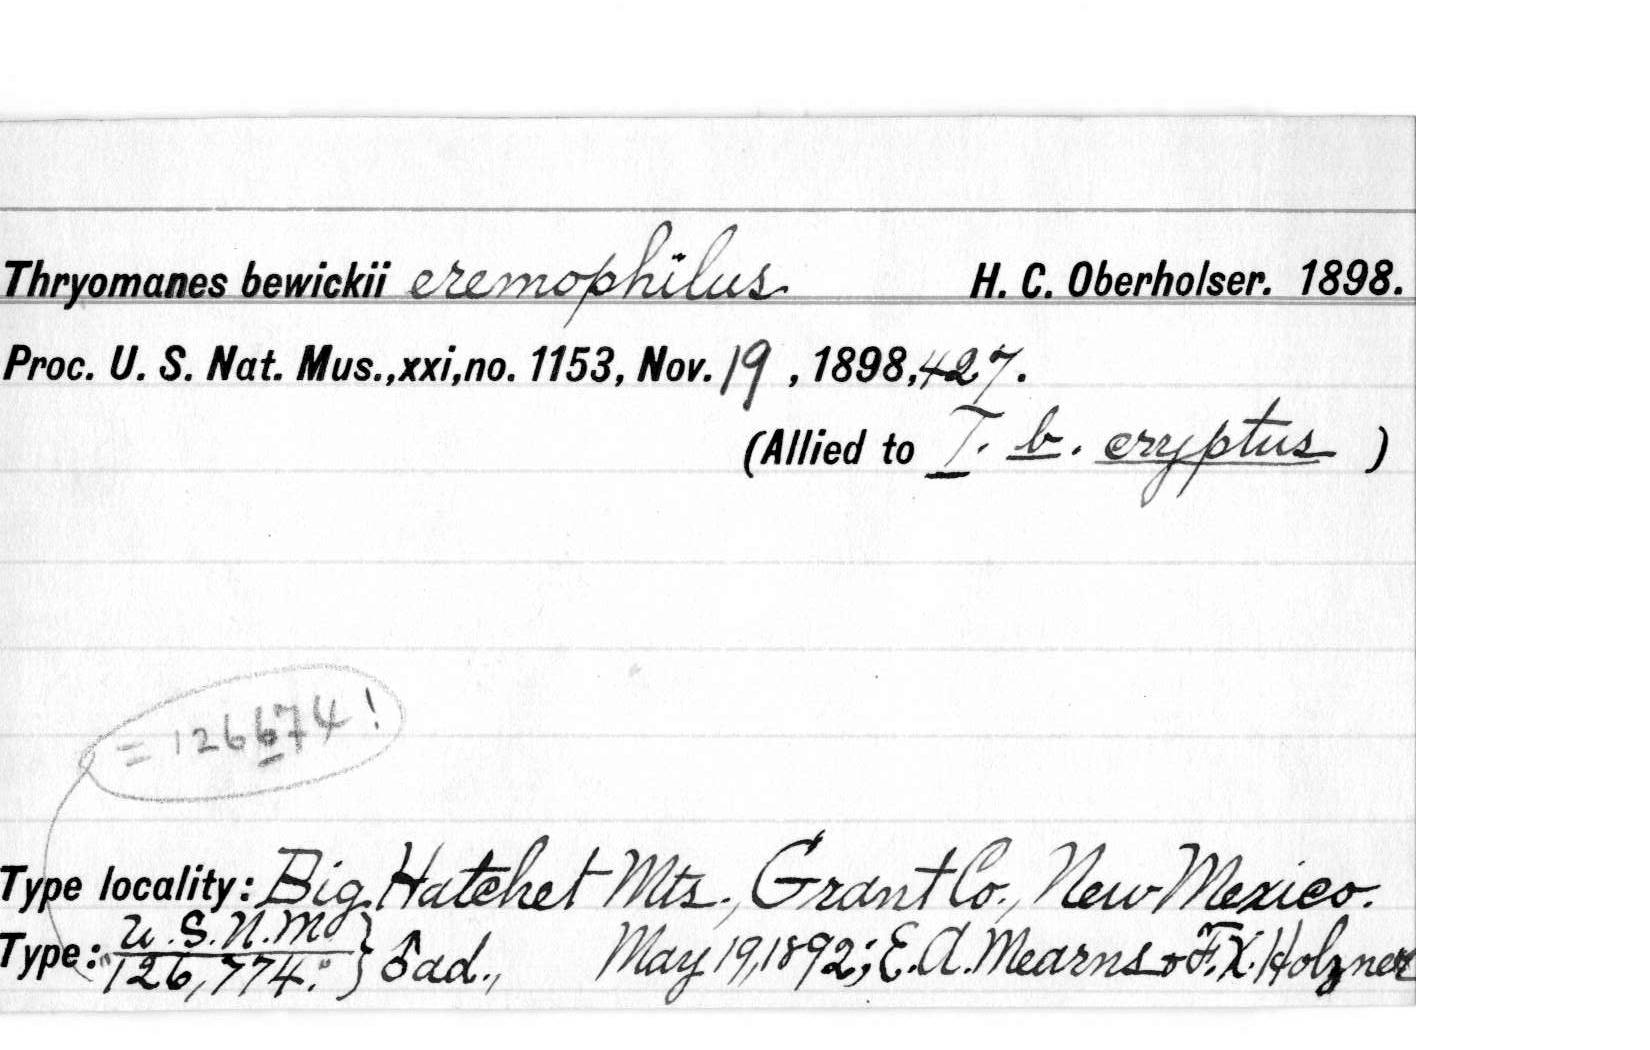 Thryomanes bewickii eremophilus. H. C. Oberholser. 1898.
Proc. U. S. Nat. Mus.,xxi,no. 1153, Nov. 19 , 1898,427.
(Allied to T. b. cryptus )
= 126674!
Type locality: Big Hatchet Mts., Grant Co., New Mexico.
Type: "U.S.N.M. 126,774." } ♂ ad., May 19, 1892; E. A. Mearns & F. X. Holzner